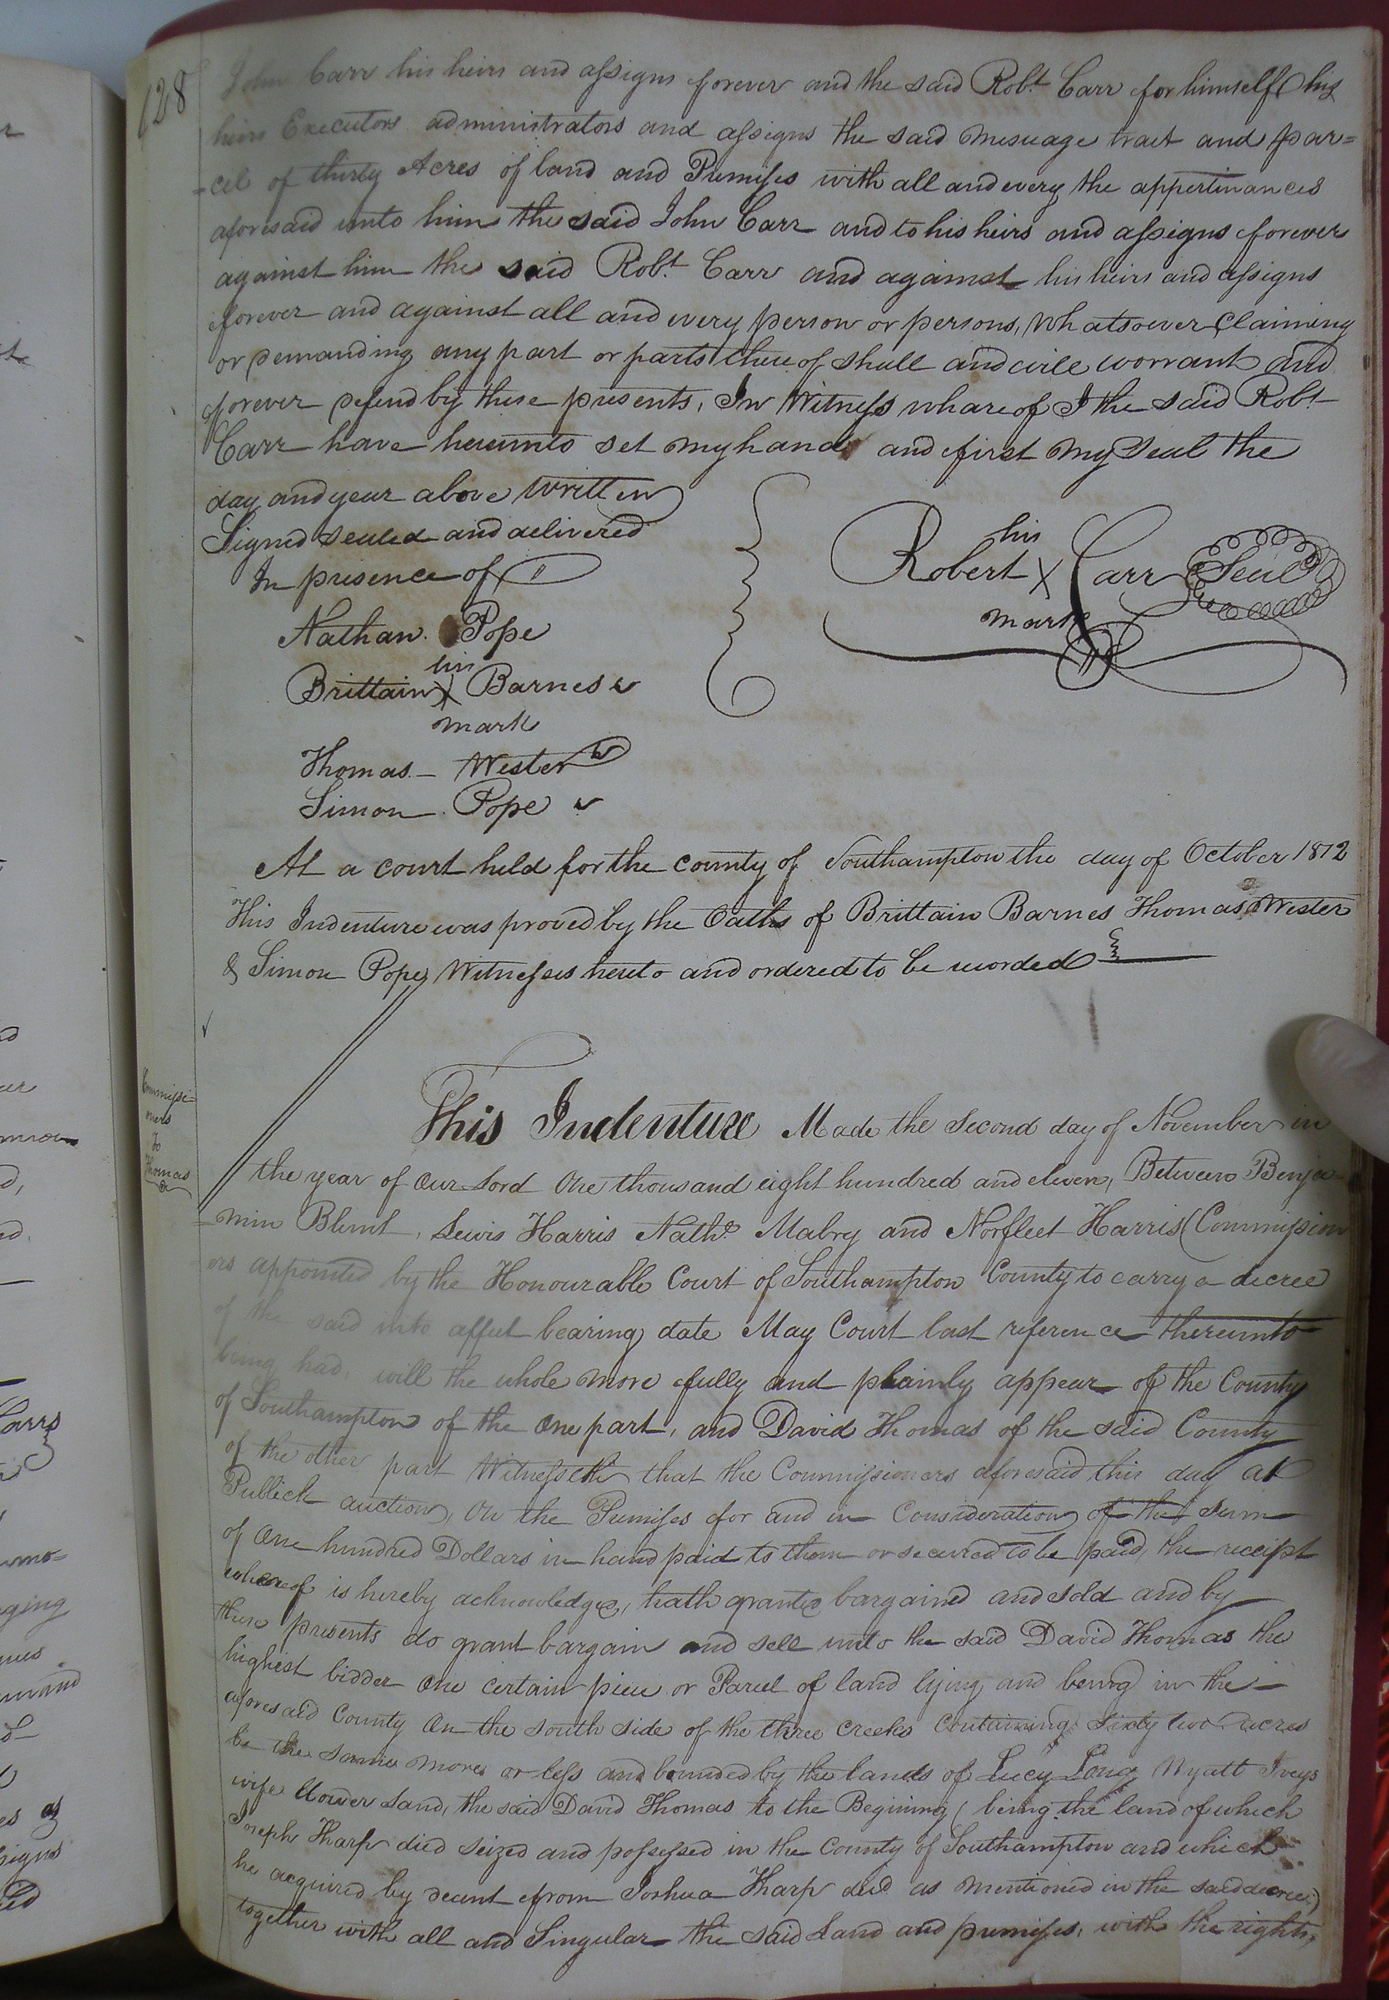 128
John Carr his heirs and assigns forever and the said Robt. Carr for himself his
heirs Executors administrators and assigns the said mesuage tract and par=
-cel of thirty Acres of land and Premises with all and every the appertinances
aforesaid unto him the said John Carr and to his heirs and assigns forever
against him the said Robt. Carr and against his heirs and assigns
forever and against all and every person or persons, whatsoever claiming
or demanding any part or parts thereof shall and will warrant and
forever defend by these presents, In Witness whareof I the said Robt.
Carr have hereunto set my hand and first my Seal the
day and year above written
Signed sealed and delivered
In presence of
Nathan Pope
Brittain his X mark Barnes
Thomas Wester
Simon Pope
Robert his X mark Carr Seal
At a court held for the county of Southampton the day of October 1812
This Indenture was proved by the Oaths of Brittain Barnes Thomas Wester
& Simon Pope Witnesses hereto and ordered to be recorded
Commissi=
oners
To
Thomas
This Indenture Made the second day of November in
the year of our Lord One thousand eight hundred and eleven, Between Benja=
=min Blunt, Lewis Harris Nathl. Mabry and Norfleet Harris (Commission
ors appointed by the Honourable Court of Southampton County to carry a decree
of the said into affect bearing date May Court last reference thereunto
being had, will the whole more fully and plainly appear of the County
of Southampton of the one part, and David Thomas of the said County
of the other part Witnesseth that the Commissioners aforesaid this day at
Publick auction, on the Premises for and in Consideration of the sum
of One hundred Dollars in hand paid to them or secured to be paid, the receipt
whereof is hereby acknowledged, hath granted bargained and sold and by
these presents do grant bargain and sell unto the said David Thomas the
highest bidder One certain piece or Parcel of land lying and being in the
aforesaid County On the south side of the three creeks Containing sixty two acres
be the same more or less and bounded by the lands of Lucy Long Wyatt Iveys
wife dower Land, the said David Thomas to the Begining (being the land of which
Joseph Tharp died seized and possessed in the County of Southampton and which
he acquired by decent from Joshua Tharp decd as mentioned in the said decree)
together with all and Singular the said Land and premises, with the rights,